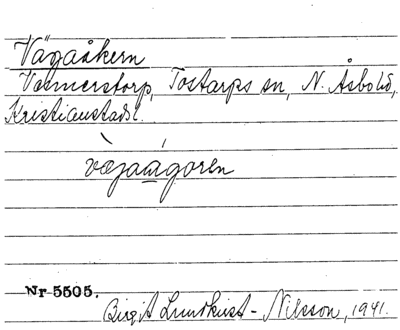 Vägaåkern
Vemmerstorp, Tostarps sn, N. Åsbohd,
Kristianstads l.
væjaágoren
Nr 5505.
Birgit Lundkvist-Nilsson, 1941.